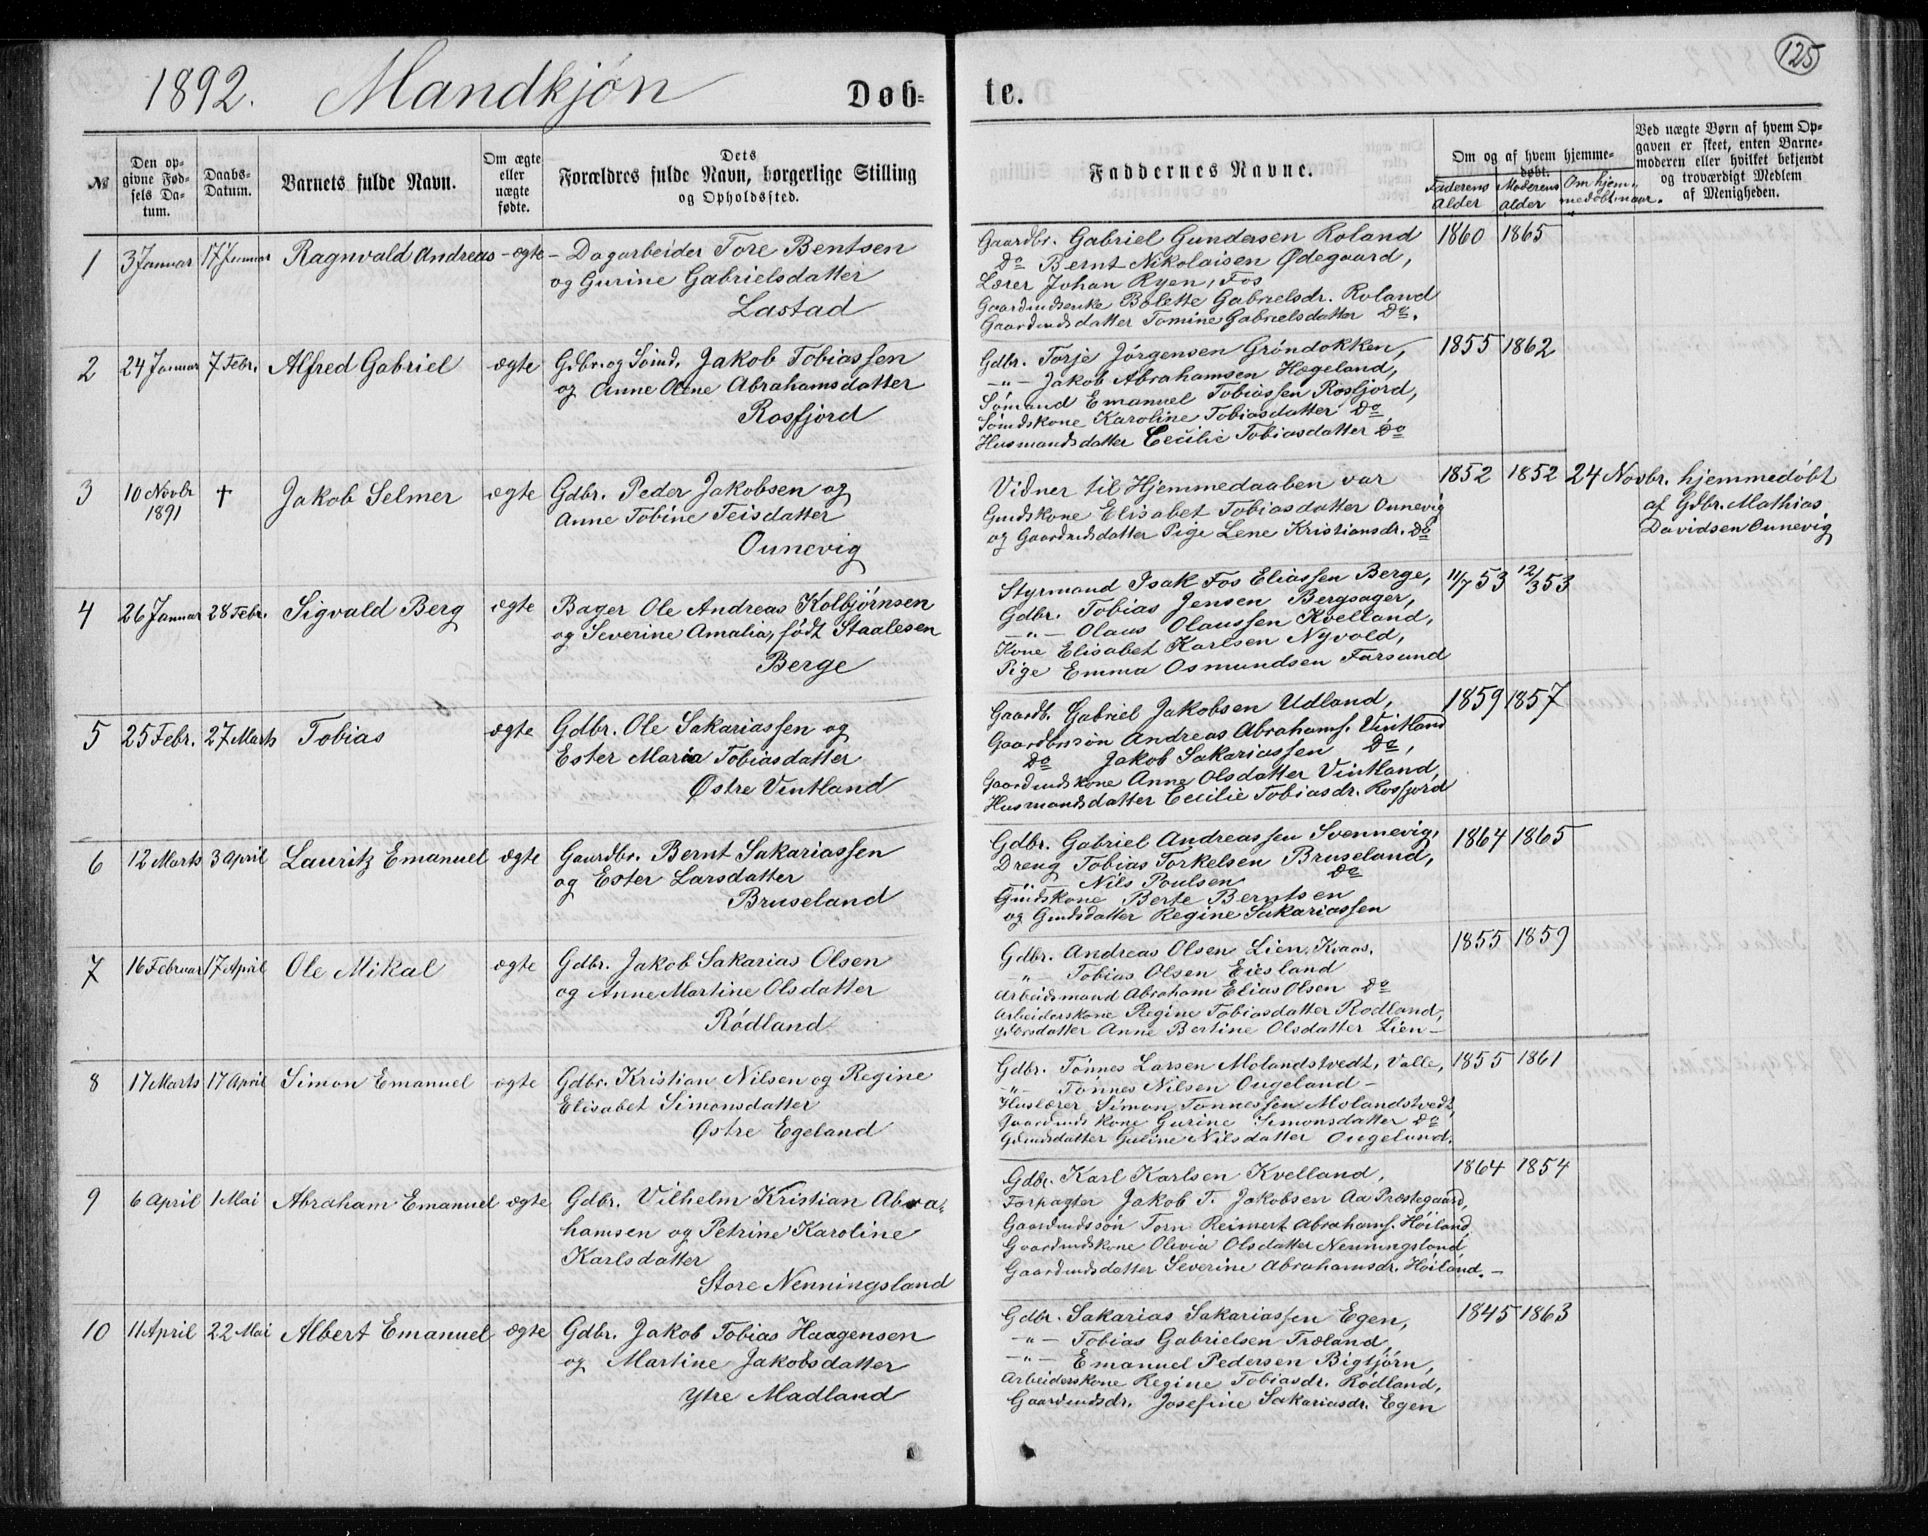 125
1892. Mandkjøn Døb- te.
№
Den op-
givne Fød-
sels Da-
tum.
Daabs-
Datum.
Barnets fulde Navn.
Om ægte
eller
uægte
fødte.
Dets
Forældres fulde Navn, borgerlige Stilling
og Opholdssted.
Faddernes Navne.
Om og af hvem hjemme-
døbt.
Faderens
Alder
Moderens
alder
Om hjem-
medøbt, naar.
Ved uægte Børn af hvem Op-
gaven er skeet, enten Barne-
moderen eller hvilket bekjendt
og troværdigt Medlem
af Menigheden.
1 3 Januar 17 Januar Ragnvald Andreas - ægte - Dagarbeider Tore Bentsen
og Gurine Gabrielsdatter
Lastad
Gaardbr. Gabriel Gundersen Roland 1860 1865
Do Bernt Nikolaisen Ødegaard,
Lærer Johan Ryen, Fos
Gaardmdsenke Bolette Gabrielsdr. Roland
Gaardmdsdatter Tomine Gabrielsdatter Do.
2 24 Januar 7 Febr. Alfred Gabriel ægte Gdbr. og Sømd. Jakob Tobiassen
og Anne Oline Abrahamsdatter
Rosfjord
Gdbr. Torje Jørgensen Grøndokken, 1855 1862
-"- Jakob Abrahamsen Hægeland,
Sømand Emanuel Tobiassen Rosfjord,
Sømdskone Karoline Tobiasdatter Do
Husmandsdatter Cecilie Tobiasdatter Do
3 10 Novbr 1891 † Jakob Selmer ægte Gdbr. Peder Jakobsen og
Anne Tobine Teisdatter
Ounevig
Vidner til Hjemmedaaben var 1852 1852 24 Novbr. hjemmedøbt
Gmdskone Elisabet Tobiasdatter Ounevig af Gdbr. Mathias
og Gaardmdsdatter Pige Lene Kristiansdr. Do Davidsen Ounevig
4 26 Januar 28 Febr. Sigvald Berg ægte Bager Ole Andreas Kolbjørnsen
og Severine Amalia, født Staalesen
Berge
Styrmand Isak Fos Eliassen Berge, 11/7 53 12/3 53
Gdbr. Tobias Jensen Bergsager,
-"- Olaus Olaussen Kvelland,
Kone Elisabet Karlsen Nyvold,
Pige Emma Osmundsen Farsund
5 25 Febr. 27 Marts Tobias ægte Gdbr. Ole Sakariassen og
Ester Maria Tobiasdatter
Østre Vintland
Gaardb. Gabriel Jakobsen Udland, 1859 1857
Gaardbrssøn Andreas Abrahams. Vintland
Do Jakob Sakariassen Do,
Gaardmdskone Anne Olsdatter Vintland,
Husmandsdatter Cecilie Tobiasdr. Rosfjord
6 12 Marts 3 April Lauritz Emanuel ægte Gaardbr. Bernt Sakariassen
og Ester Larsdatter
Bruseland
Gdbr. Gabriel Andreassen Svennevig, 1864 1865
Dreng Tobias Torkelsen Bruseland,
" Nils Poulsen Do
Gmdskone Berte Berntsen
og Gmdsdatter Regine Sakariassen
7 16 Februar 17 April Ole Mikal ægte Gdbr. Jakob Sakarias Olsen
og Anne Martine Olsdatter
Rødland
Gdbr. Andreas Olsen Lien, Kvaas. 1855 1859
"- Tobias Olsen Eiesland
Arbeidsmand Abraham Elias Olsen Do
Arbeiderskone Regine Tobiasdatter Rødland,
Gdbrsdatter Anne Bertine Olsdatter Lien-
8 17 Marts 17 April Simon Emanuel ægte Gdbr. Kristian Nilsen og Regine
Elisabet Simonsdatter
Østre Egeland
Gdbr. Tønnes Larsen Molandstvedt, Valle, 1855 1861
-"- Tønnes Nilsen Ougeland -
Huslærer Simon Tønnessen Molandstvedt,
Gaardmdskone Gurine Simonsdatter Do
Gdmdsdatter Guline Nilsdatter Ougeland.
9 6 April 1 Mai Abraham Emanuel ægte Gdbr. Vilhelm Kristian Abra-
hamsen og Petrine Karoline
Karlsdatter
Store Nenningsland
Gdbr. Karl Karlsen Kvelland, 1864 1854
Forpagter Jakob T. Jakobsen Aa Prestegaard,
Gaardmdssøn Torn Reimert Abrahams. Høiland,
Gaardmdskone Olivia Olsdatter Nenningsland
Gaardmdsdatter Severine Abrahamsdr. Høiland. -
10 11 April 22 Mai Albert Emanuel ægte Gdbr. Jakob Tobias Haagensen
og Martine Jakobsdatter
Ytre Madland
Gdbr. Sakarias Sakariassen Egen, 1845 1863
-"- Tobias Gabrielsen Træland,
-"- Emanuel Pedersen Bigtjørn,
Arbeiderskone Regine Tobiasdr. Rødland,
Gaardmdsdr. Josefine Sakariasdr. Egen